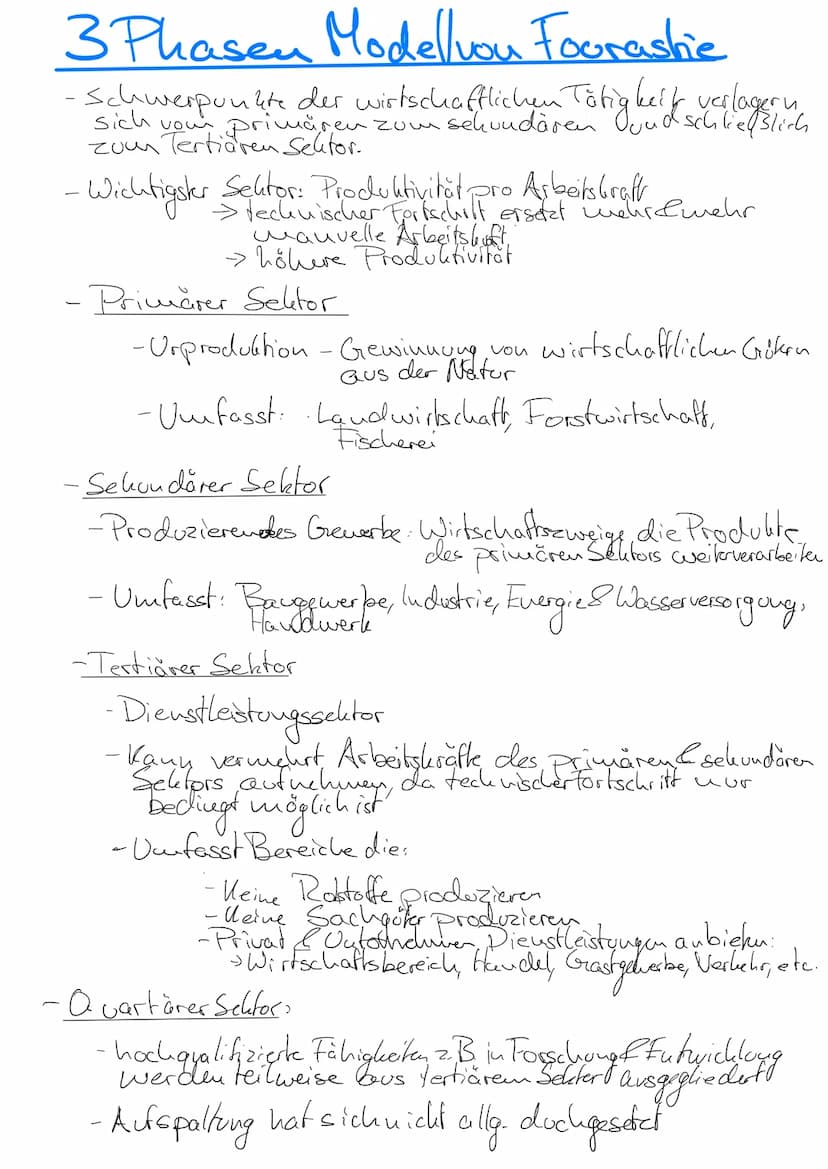 3 Phasen Modell von Fourastie
- Schwerpunkte der wirtschaftlichen Tätigkeit verlagern
sich vom primären zum sekundären und schließlich
zum Tertiären Sektor.
- Wichtigster Sektor: Produktivität pro Arbeitskraft
→ technischer Fortschritt ersetzt mehr & mehr
manuelle Arbeitskraft
→ höhere Produktivität
- Primärer Sektor
- Urproduktion - Gewinnung von wirtschaftlichen Gütern
aus der Natur
- Umfasst: Landwirtschaft, Forstwirtschaft,
Fischerei
- Sekundärer Sektor
- Produzierendes Gewerbe: Wirtschaftszweige, die Produkte
des primären Sektors weiterverarbeiten
- Umfasst: Baugewerbe, Industrie, Energie & Wasserversorgung,
Handwerk
- Tertiärer Sektor
- Dienstleistungssektor
- Kann vermehrt Arbeitskräfte des primären & sekundären
Sektors aufnehmen, da technischer Fortschritt nur
bedingt möglich ist
- Umfasst Bereiche die:
- keine Rohstoffe produzieren
- keine Sachgüter produzieren
- Privat & Dienstleistungen anbieten:
→ Wirtschaftsbereich, Handel, Gastgewerbe, Verkehr, etc.
- Quartärer Sektor:
- hochqualifizierte Fähigkeiten z.B in Forschung & Entwicklung
werden teilweise aus tertiärem Sektor ausgegliedert
- Aufspaltung hat sich nicht allg. duchgesetzt